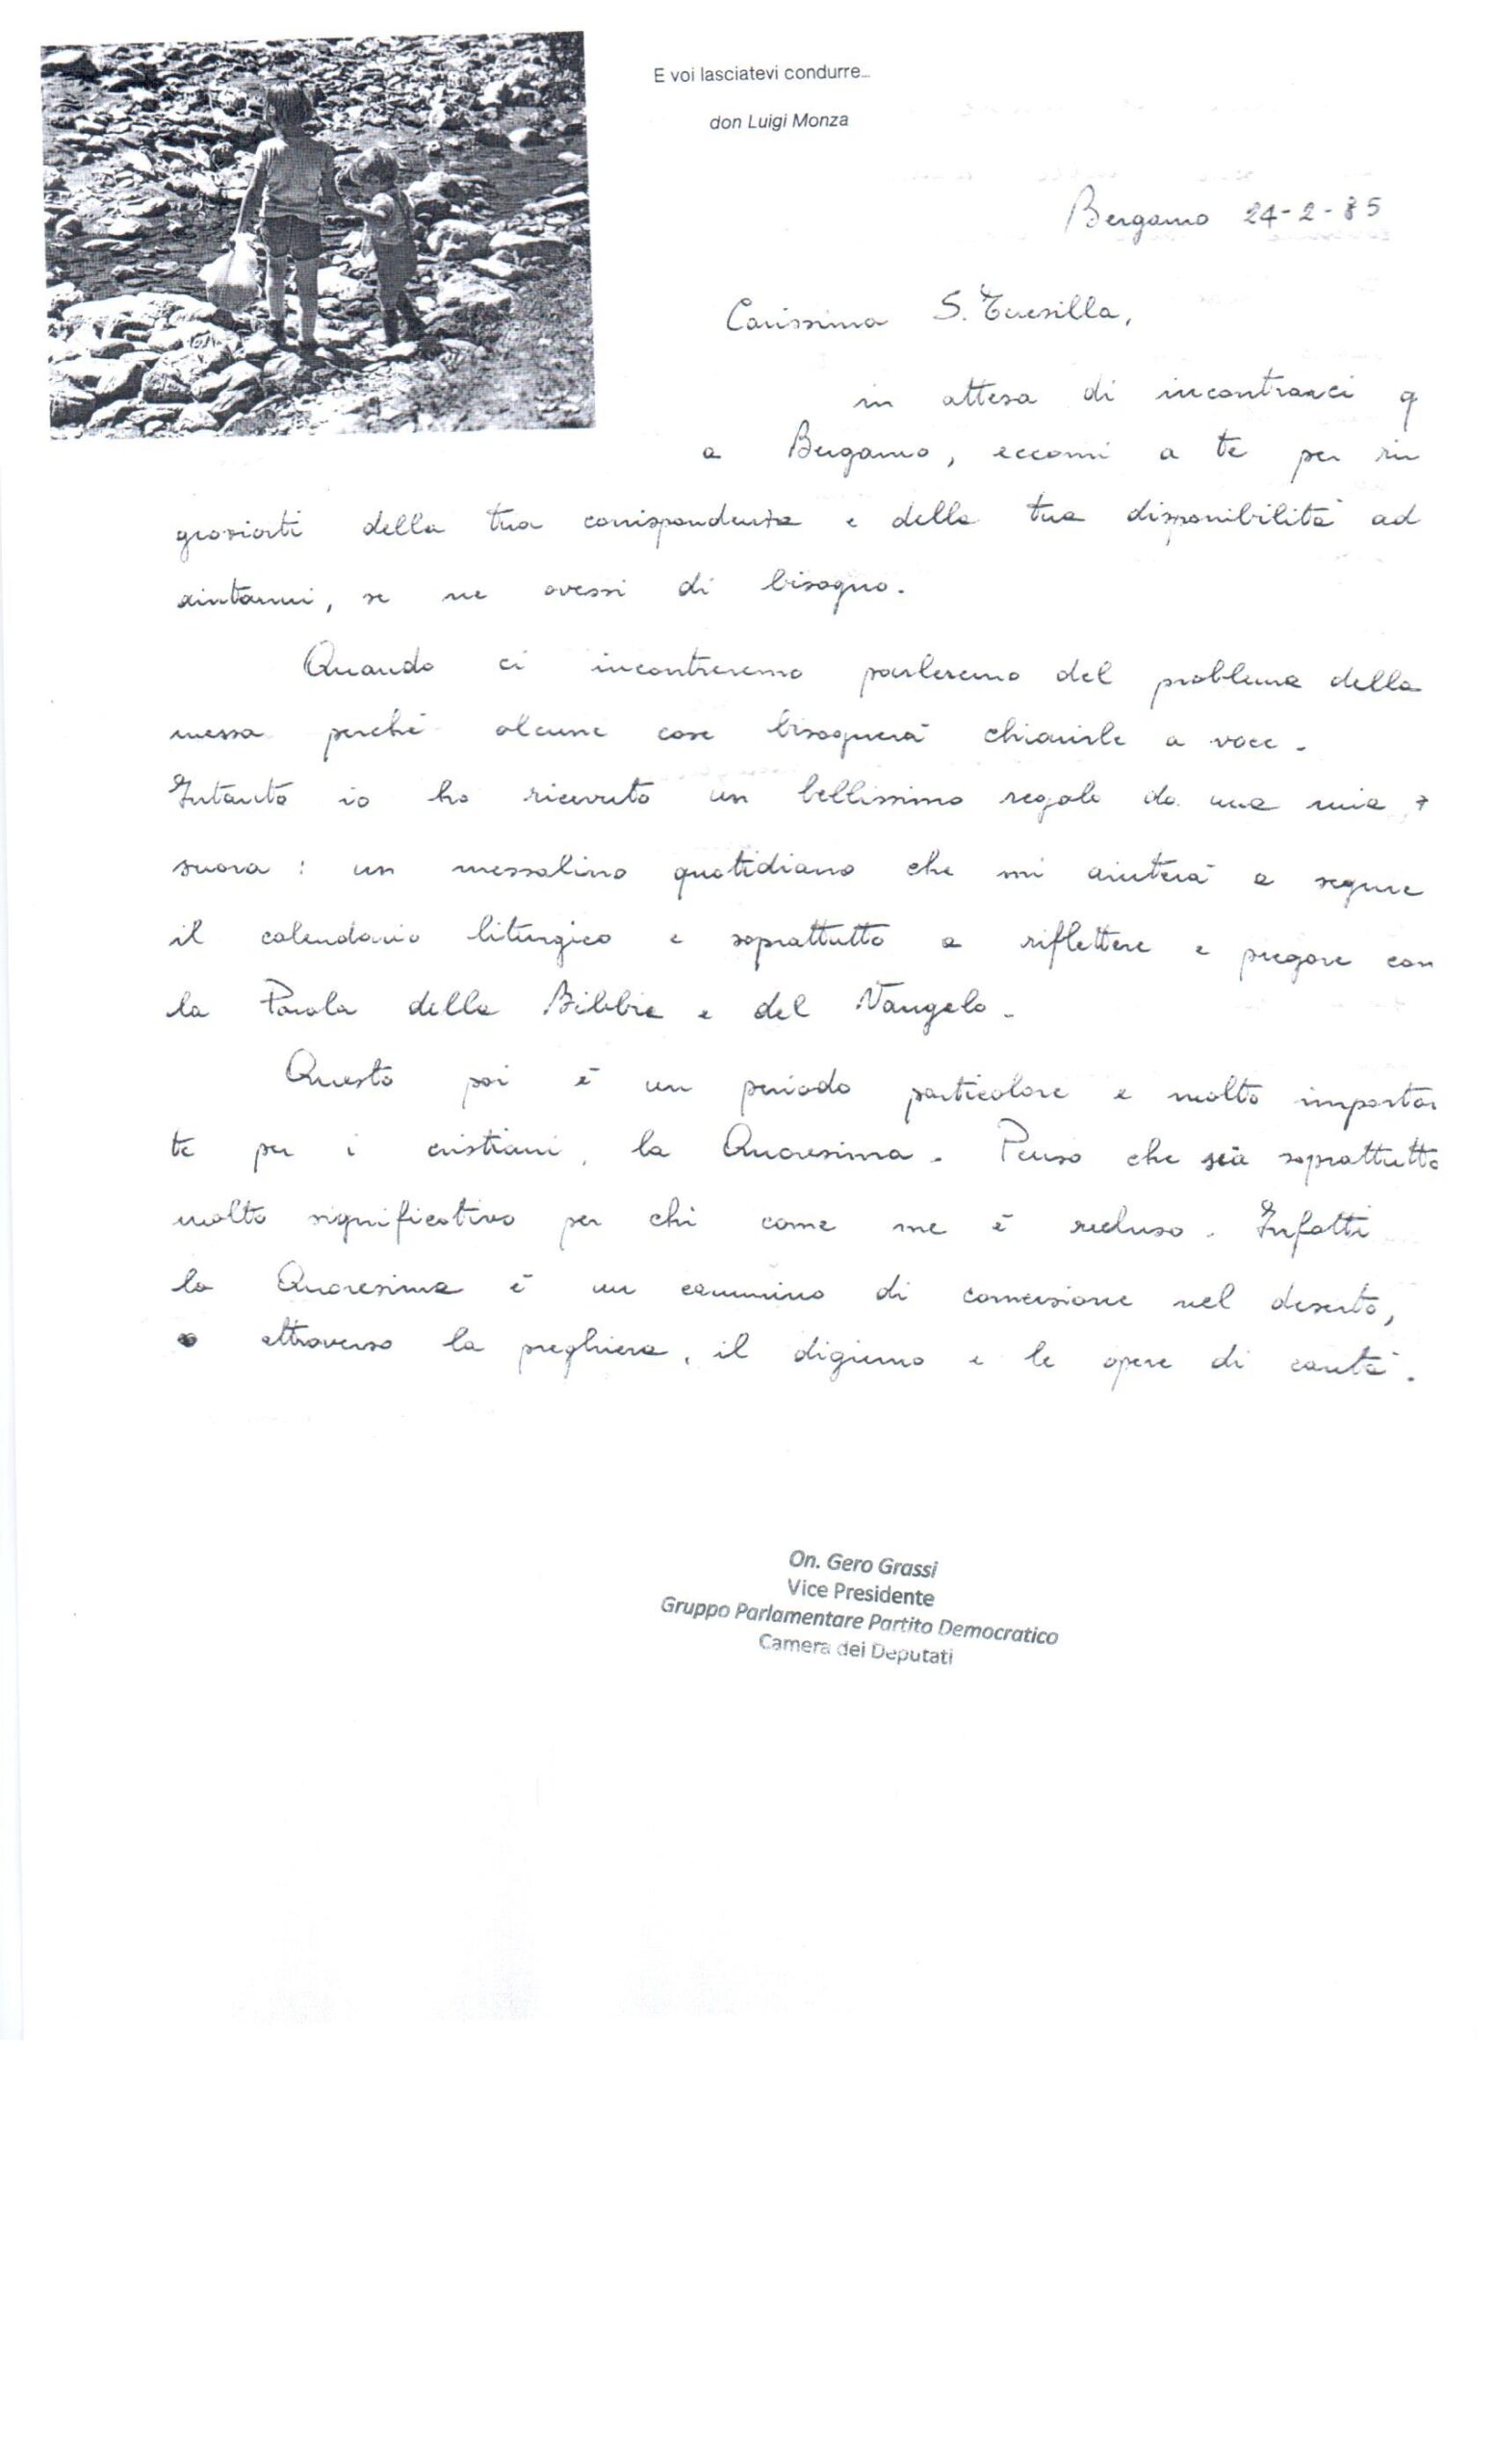 E voi lasciatevi condurre...
don Luigi Monza
Bergamo 24-2-85
Carissima S. Teresilla,
in attesa di incontrarci q
a Bergamo, eccomi a te per rin
graziarti della tua corrispondenza e della tua disponibilità ad
aiutarmi, se ne avessi di bisogno.
Quando ci incontreremo parleremo del problema della
messa perché alcune cose bisognerà chiarirle a voce.
Intanto io ho ricevuto un bellissimo regalo da una mia
suora: un messalino quotidiano che mi aiuterà a seguire
il calendario liturgico e soprattutto a riflettere e pregare con
la Parola della Bibbia e del Vangelo.
Questo poi è un periodo particolare e molto importan
te per i cristiani, la Quaresima. Penso che sia soprattutto
molto significativo per chi come me è recluso. Infatti
la Quaresima è un cammino di conversione nel deserto,
attraverso la preghiera, il digiuno e le opere di carità.
On. Gero Grassi
Vice Presidente
Gruppo Parlamentare Partito Democratico
Camera dei Deputati